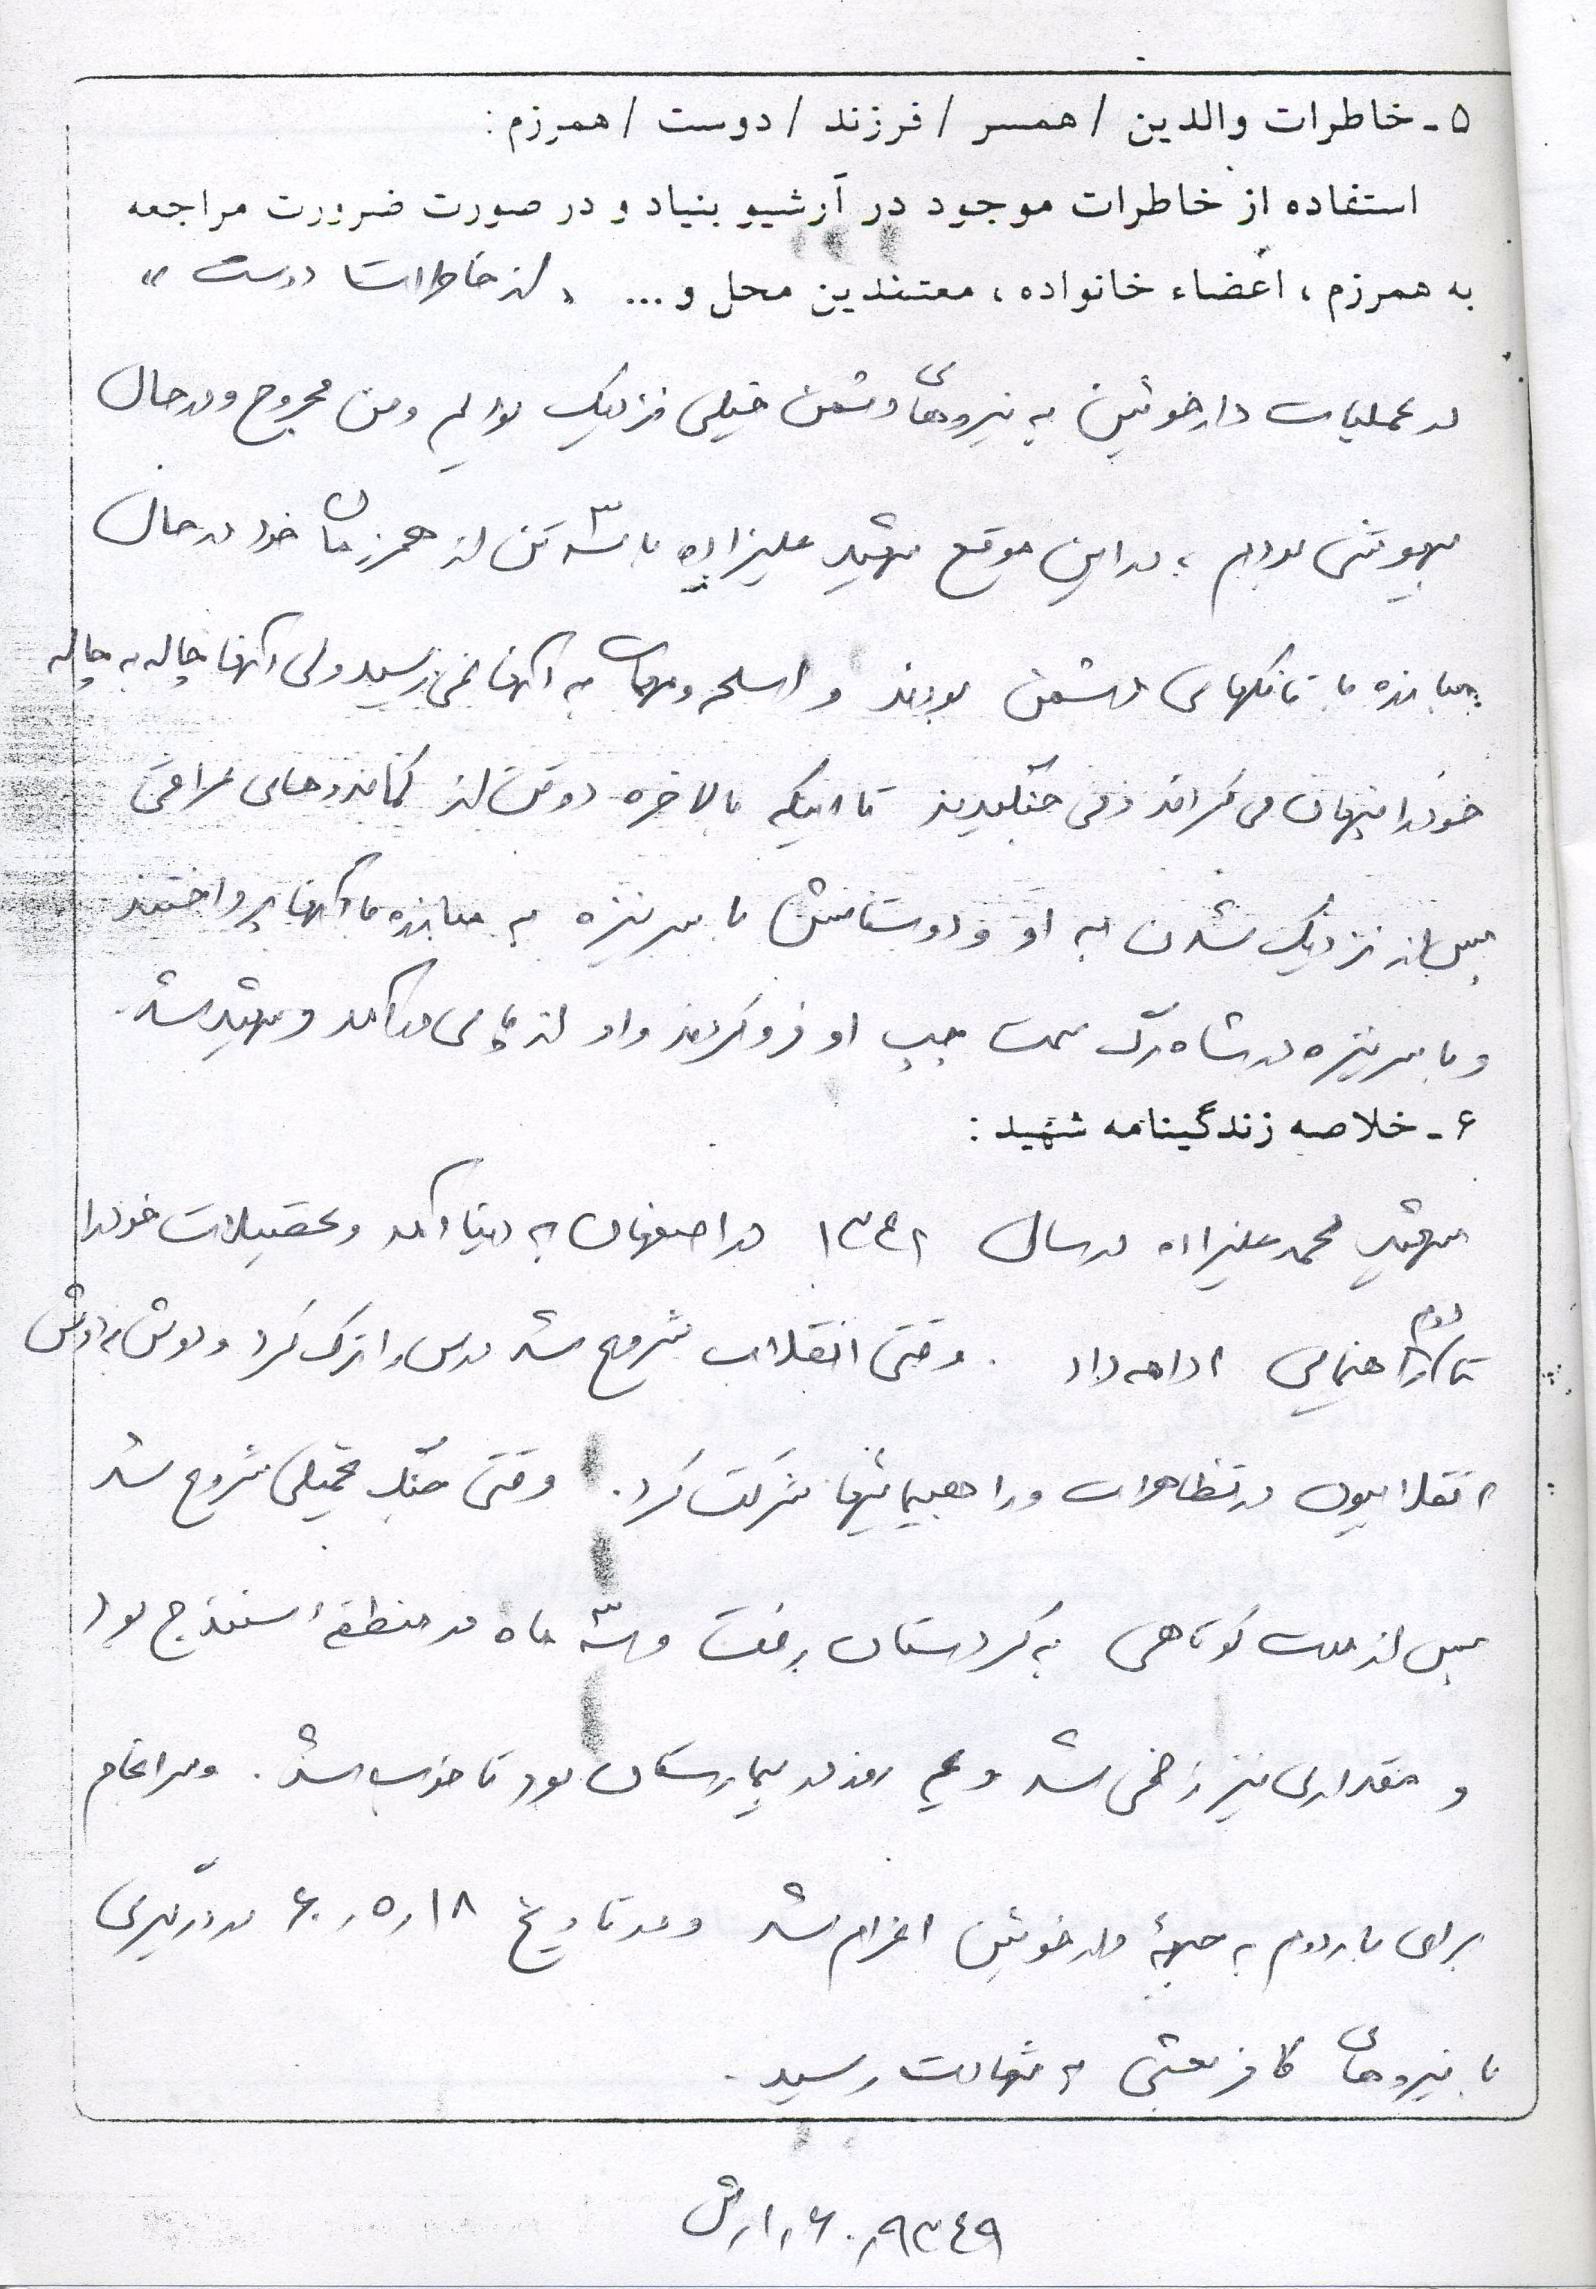 ۵ - خاطرات والدین / همسر / فرزند / دوست / همرزم :
استفاده از خاطرات موجود در آرشیو بنیاد و در صورت ضرورت مراجعه
به همرزم ، اعضاء خانواده ، معتمدین محل و ... « از خاطرات دوست »
در عملیات دارخوئین به نیروهای دشمن خیلی نزدیک بودیم و من مجروح و در حال
بیهوشی بودم ، در این موقع شهید علیزاده با سه تن از همرزمان خود در حال
مبارزه با تانکهای دشمن بودند و اسلحه و مهمات به آنها نمی رسید ولی آنها چاله به چاله
خود را پنهان می کردند و می جنگیدند تا اینکه بالاخره دو تن از کماندوهای عراقی
پس از نزدیک شدن به او و دوستانش با سرنیزه به مبارزه با آنها پرداختند
و با سرنیزه در شاه رگ سمت چپ او فرو کردند و او از پای درآمد و شهید شد.
۶ - خلاصه زندگینامه شهید :
شهید محمد علیزاده در سال ۱۳۴۲ در اصفهان به دنیا آمد و تحصیلات خود را
تا دوم راهنمایی ادامه داد . وقتی انقلاب شروع شد درس را ترک کرد و دوش بدوش
انقلابیون در تظاهرات و راهپیمائیها شرکت کرد . وقتی جنگ تحمیلی شروع شد
پس از مدت کوتاهی به کردستان رفت و سه ماه در منطقه سنندج بود
و مقداری نیز زخمی شد و روز در بیمارستان بود تا خوب شد . و سرانجام
برای بار دوم به جبههٔ دارخوئین اعزام شد و در تاریخ ۱۸ر۵ر۶۰ در درگیری
با نیروهای کافر بعثی به شهادت رسید .